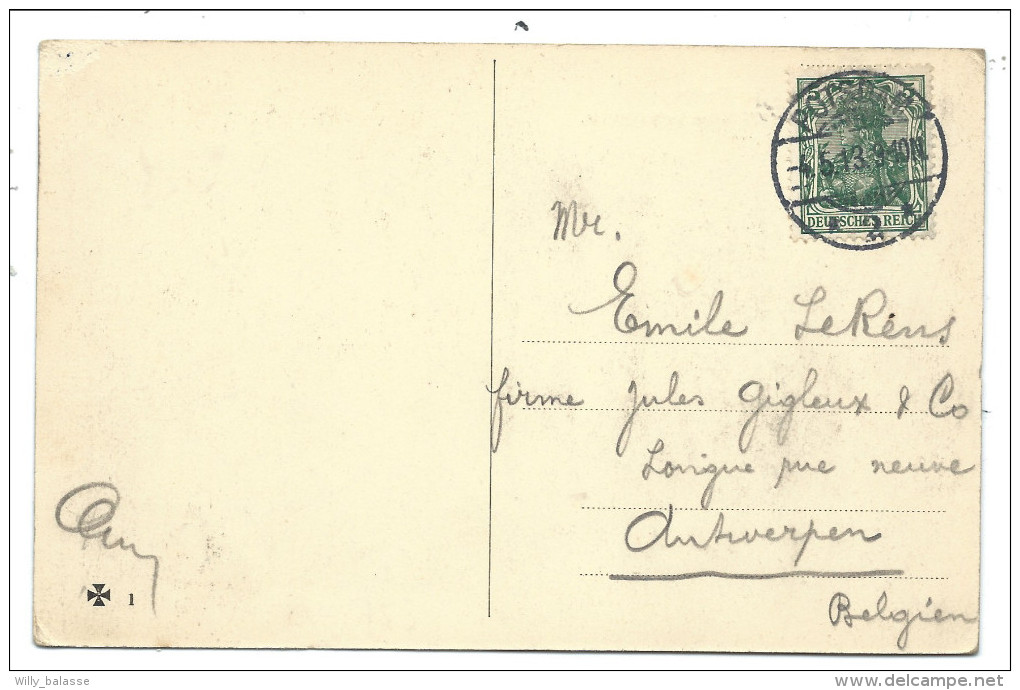 DEUTSCHES REICH
2
Mr.
Emile LeRens
firme Jules Gigleux & Co
Longue rue neuve
Antwerpen
Belgien
1
Willy_balasse
delcampe.net